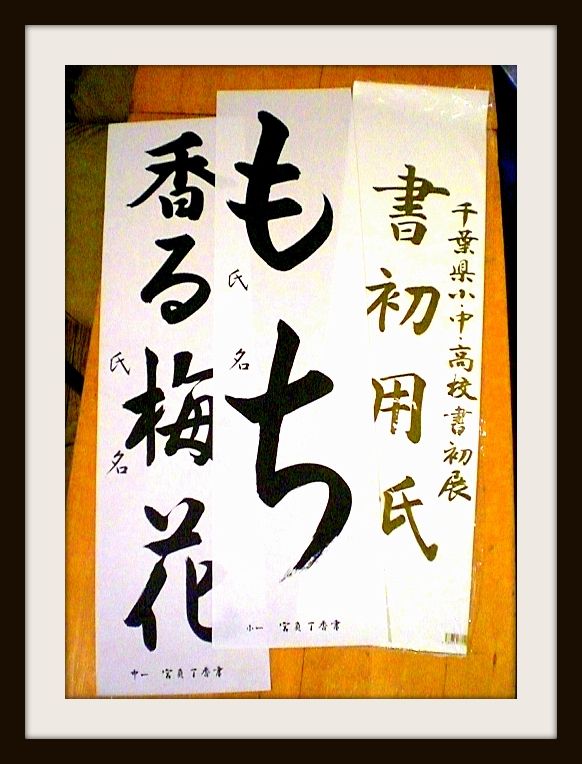 千葉県小・中・高校書初展
書初用氏
もち
氏名
小一 宮負丁香書
香る梅花
氏名
中一 宮負丁香書